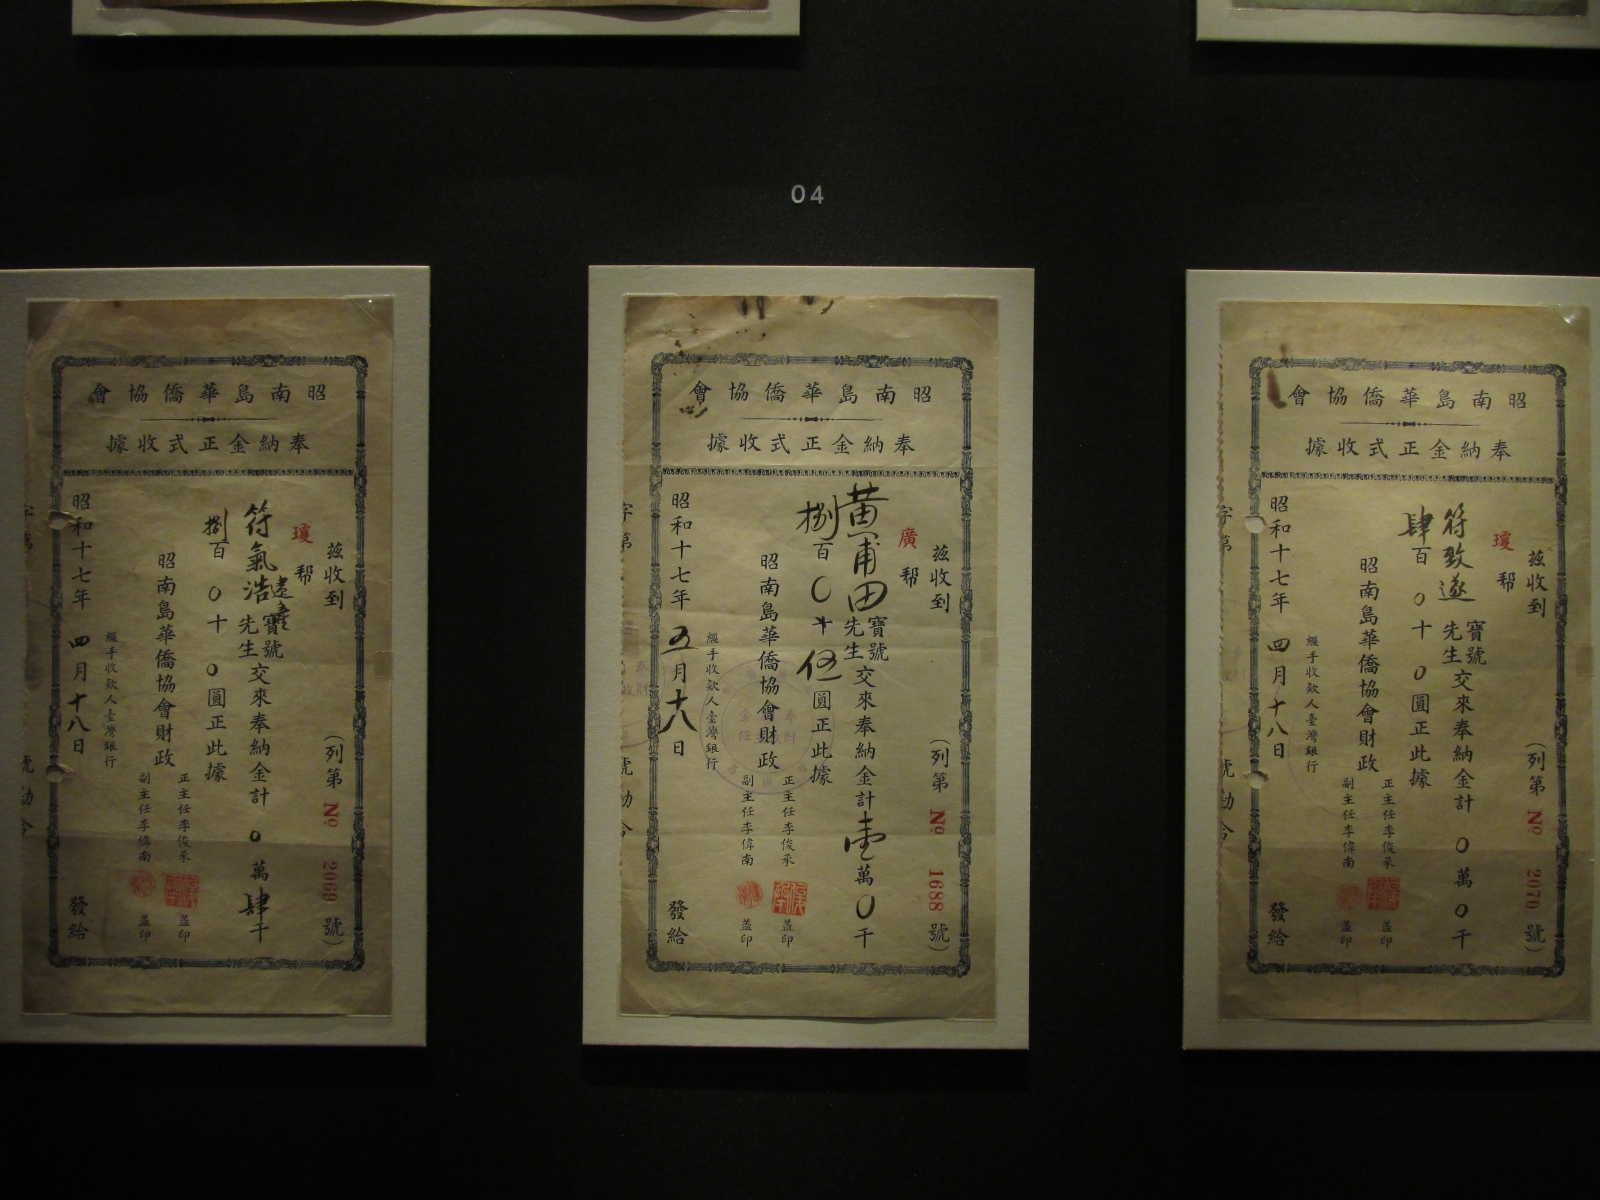 04
昭南島華僑協會
奉納金正式收據
茲收到
瓊幇
符氣浩
寶號
先生
交來奉納金計0萬肆千
捌百0十0圓正此據
昭南島華僑協會財政
正主任李俊承 盖印
副主任李偉南 盖印
經手收款人臺灣銀行
昭和十七年四月十八日 發給
(列第 No 2069 號)
昭南島華僑協會
奉納金正式收據
茲收到
廣幇
黃甫田
寶號
先生
交來奉納金計壹萬0千
捌百0十伍圓正此據
昭南島華僑協會財政
正主任李俊承 盖印
副主任李偉南 盖印
經手收款人臺灣銀行
昭和十七年五月十八日 發給
(列第 No 1688 號)
昭南島華僑協會
奉納金正式收據
茲收到
瓊幇
符致遂
寶號
先生
交來奉納金計0萬0千
肆百0十0圓正此據
昭南島華僑協會財政
正主任李俊承 盖印
副主任李偉南 盖印
經手收款人臺灣銀行
昭和十七年四月十八日 發給
(列第 No 2070 號)